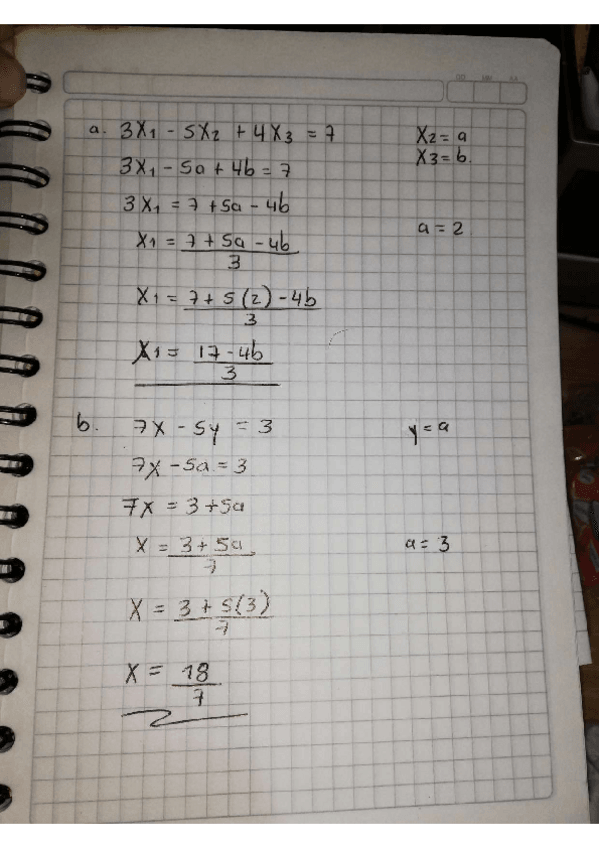 a. 3X1 - 5X2 + 4X3 = 7
X2 = a
X3 = b.
3X1 - 5a + 4b = 7
3X1 = 7 + 5a - 4b
a = 2
X1 = 7 + 5a - 4b
3
X1 = 7 + 5(2) - 4b
3
X1 = 17 - 4b
3
b. 7X - 5y = 3
y = a
7X - 5a = 3
7X = 3 + 5a
X = 3 + 5a
7
a = 3
X = 3 + 5(3)
7
X = 18
7